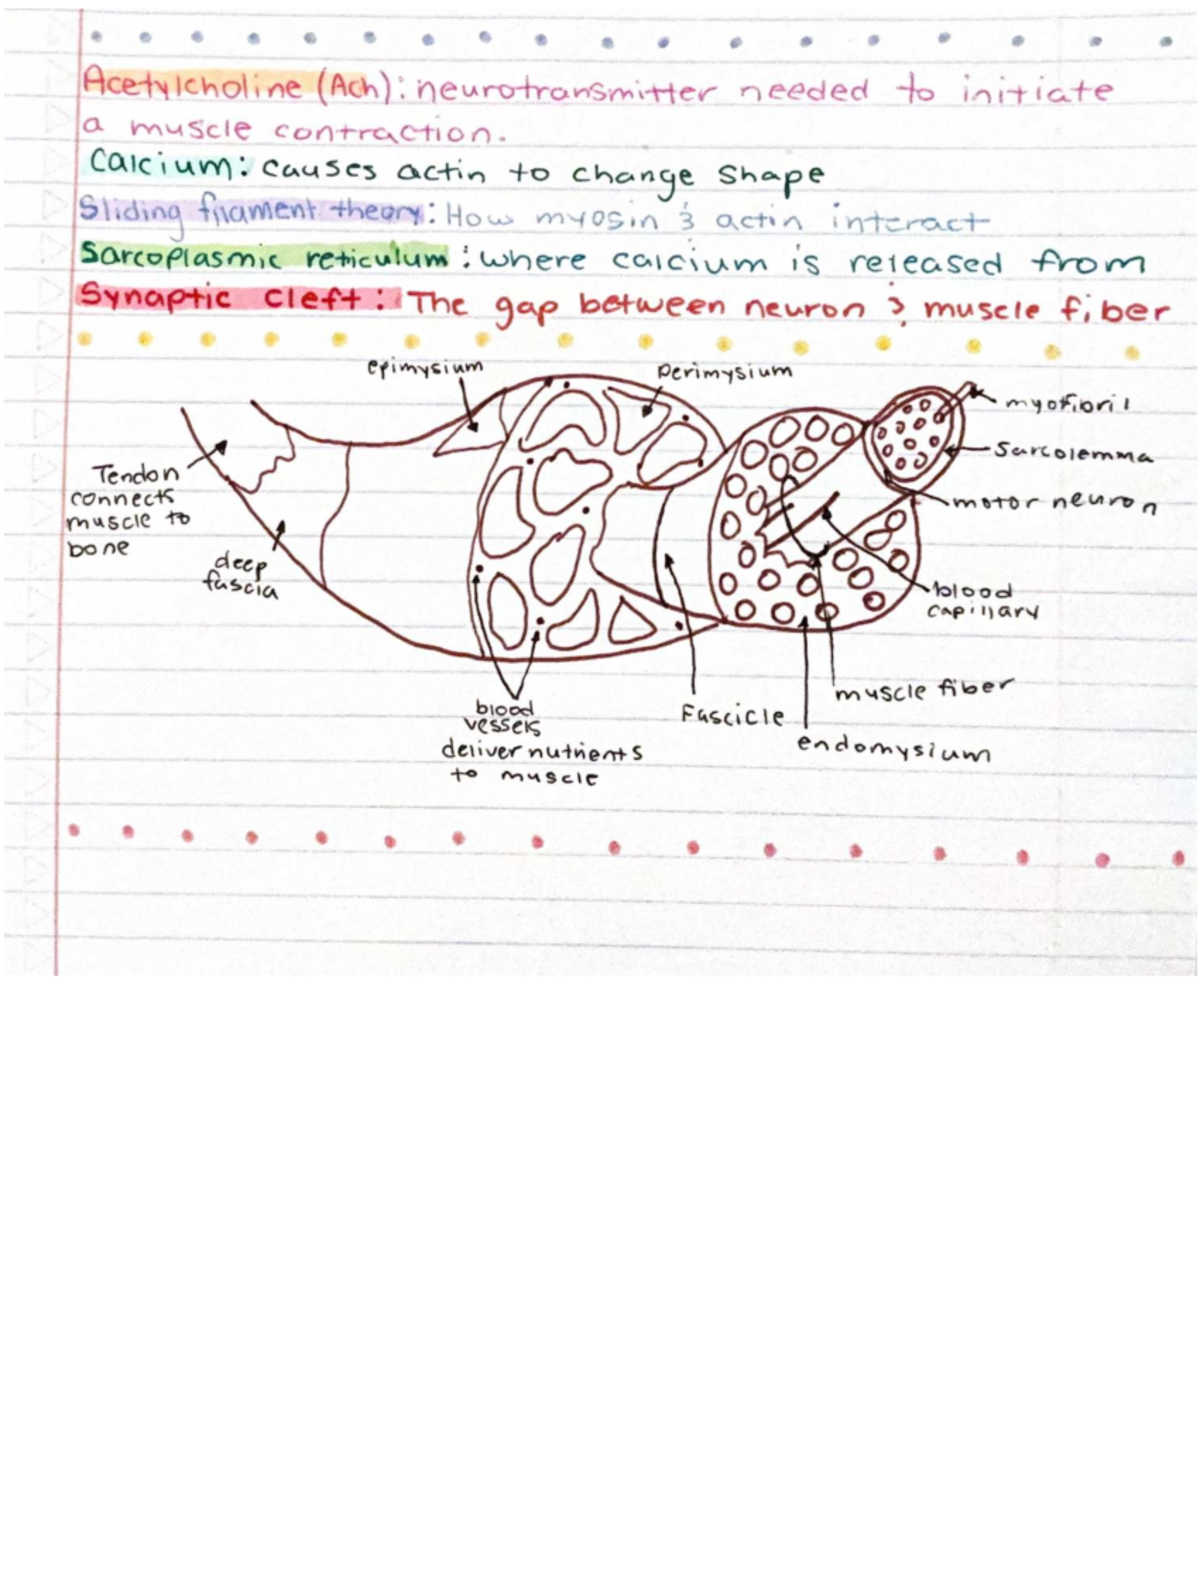 Acetylcholine (Ach): neurotransmitter needed to initiate
a muscle contraction.
Calcium: causes actin to change shape
Sliding filament theory: How myosin & actin interact
Sarcoplasmic reticulum: where calcium is released from
Synaptic cleft: The gap between neuron & muscle fiber
epimysium
perimysium
myofibril
Sarcolemma
motor neuron
Tendon
connects
muscle to
bone
deep
fascia
blood
capillary
muscle fiber
Fascicle
endomysium
blood
vessels
deliver nutrients
to muscle